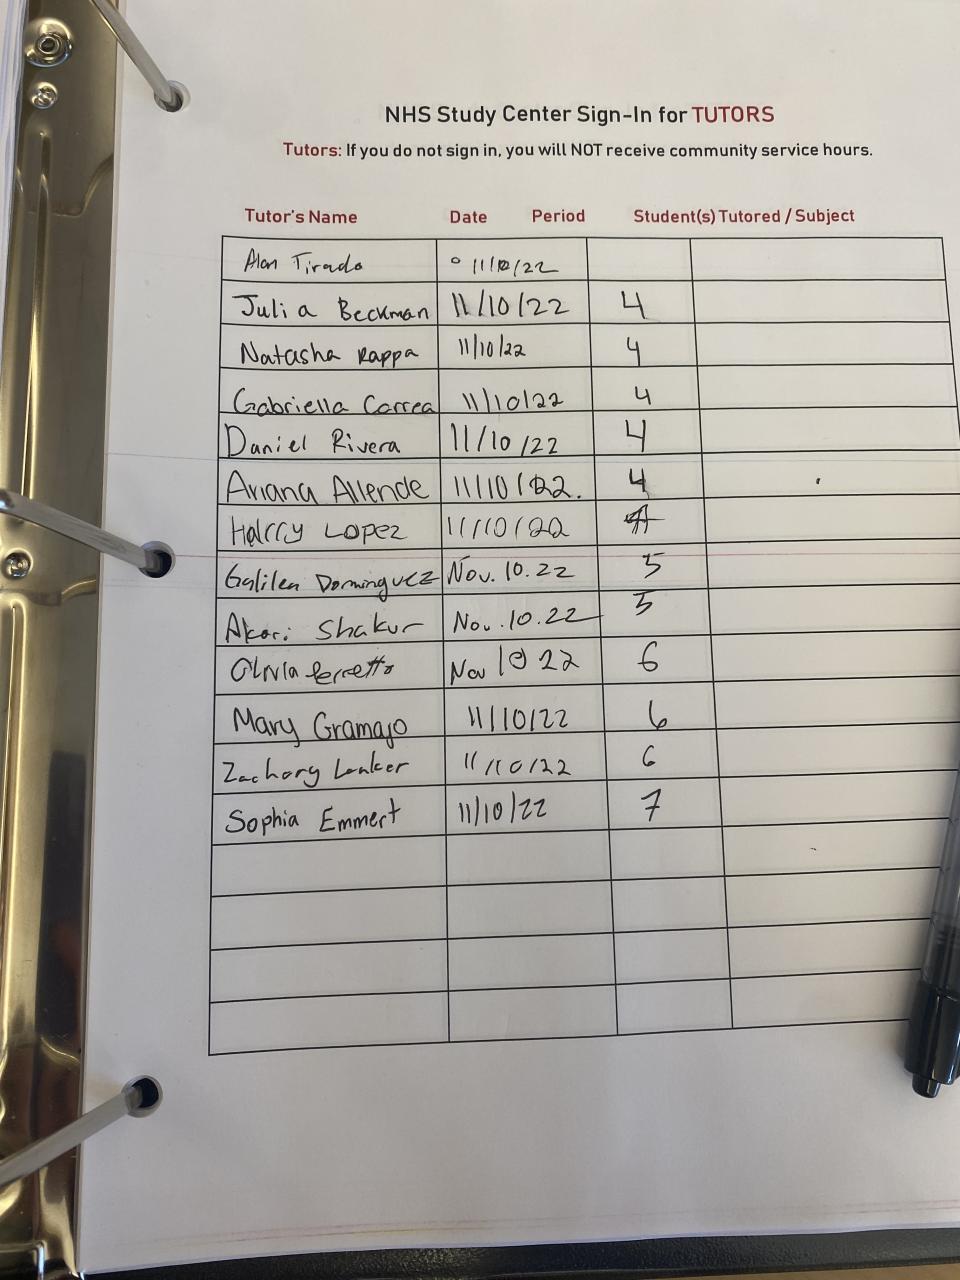 NHS Study Center Sign-In for TUTORS
Tutors: If you do not sign in, you will NOT receive community service hours.
Tutor's Name Date Period Student(s) Tutored / Subject
Alan Tirado 11/10/22
Julia Beckman 11/10/22 4
Natasha Rappa 11/10/22 4
Gabriella Correa 11/10/22 4
Daniel Rivera 11/10/22 4
Ariana Allende 11/10/22. 4
Harry Lopez 11/10/22
Galilea Dominguez Nov. 10. 22 5
Akari Shakur Nov. 10. 22 5
Olivia Nov 10 22 6
Mary Gramajo 11/10/22 6
Zachary 11/10/22 6
Sophia Emmert 11/10/22 7